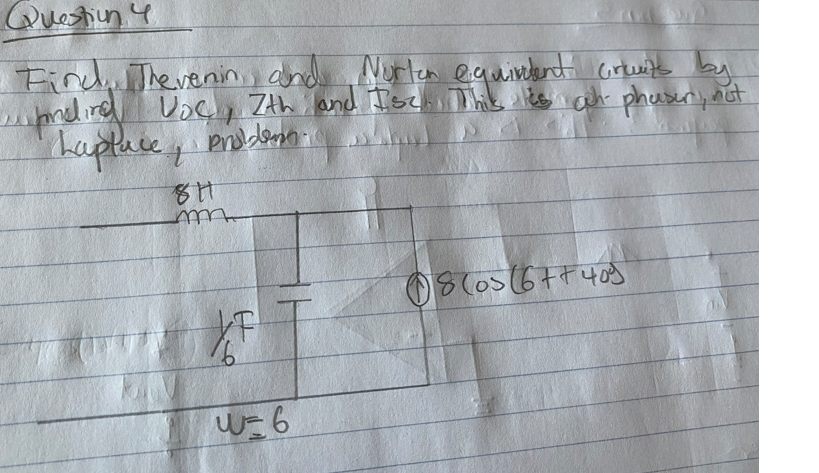 Question 4
Find Thevenin and Norton equivalent circuits by
finding VOC, Zth and Isc. This is a phasor, not
Laplace, problem.
8H
8 Cos (6t + 40°)
1/6 F
W = 6